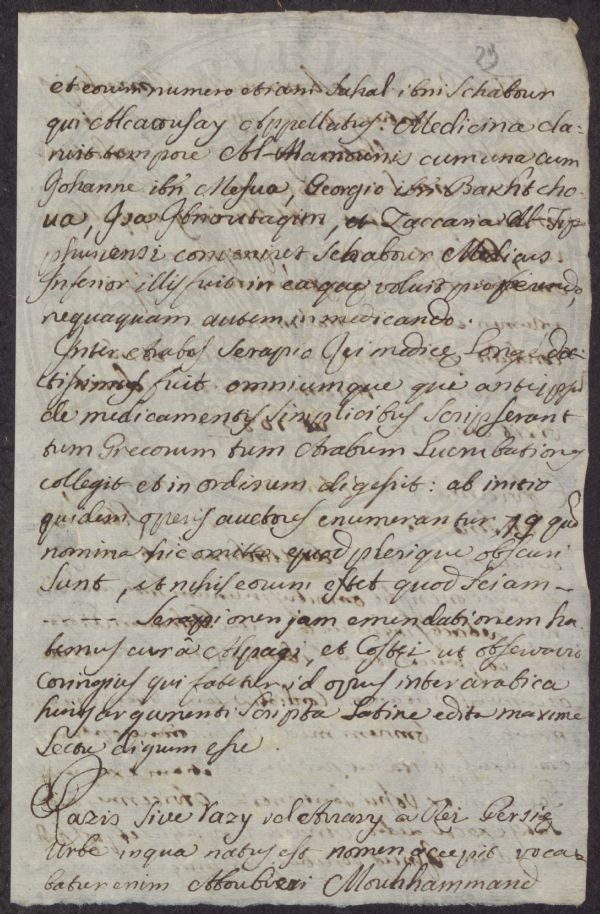 23
et eorum numero etiam Sahal ibni Schabour
qui Alcaousay Appellatus. Medicina cla-
ruit tempore Al-Mamounis cum una cum
Johanne ibn Mesua, Georgio ibn Bakhtcho-
ua, Isa Ibnoutagim, et Zaccaria Al-
conveniret Schabour Medicus.
Inferior illis fuit in ea quae voluit proferendo,
nequaquam autem in medicando.
Inter Arabes Serapio rei medicae Longe doc-
tissimus fuit omniumque qui ante ipsum
de medicamentis simplicibus scripserant
tum Grecorum tum Arabum Lucubrationes
collegit et in ordinem digessit: ab initio
quidem operis auctores enumerantur 79 quorum
nomina hic omitto quod plerique obscuri
sunt, et nihil eorum extet quod sciam —
- - - - - Serapionem jam emendationem ha-
bemus cura Alpagi, et Costei ut observavit
Coringius qui fatetur id opus inter arabica
huius argumenti scripta Latine edita maxime
Lectu dignum esse.
Razis sive Razy vel Arrazy a Rei Persiae
Urbe in qua natus est nomen accepit voca-
batur enim Aboubicri Mouhhammand